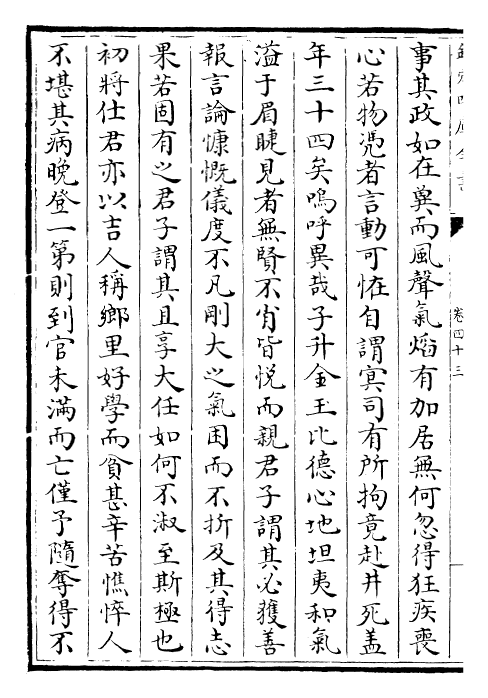 欽定四庫全書
卷四十三
事其政如在冀而風聲氣熖有加居無何忽得狂疾喪
心若物憑者言動可恠自謂冥司有所拘竟赴井死盖
年三十四矣嗚呼異哉子升金玉比德心地坦夷和氣
溢于眉睫見者無賢不肖皆悦而親君子謂其必獲善
報言論慷慨儀度不凡剛大之氣困而不折及其得志
果若固有之君子謂其且享大任如何不淑至斯極也
初將仕君亦以吉人稱鄉里好學而貧甚辛苦憔悴人
不堪其病晩登一第則到官未滿而亡僅予隨奪得不